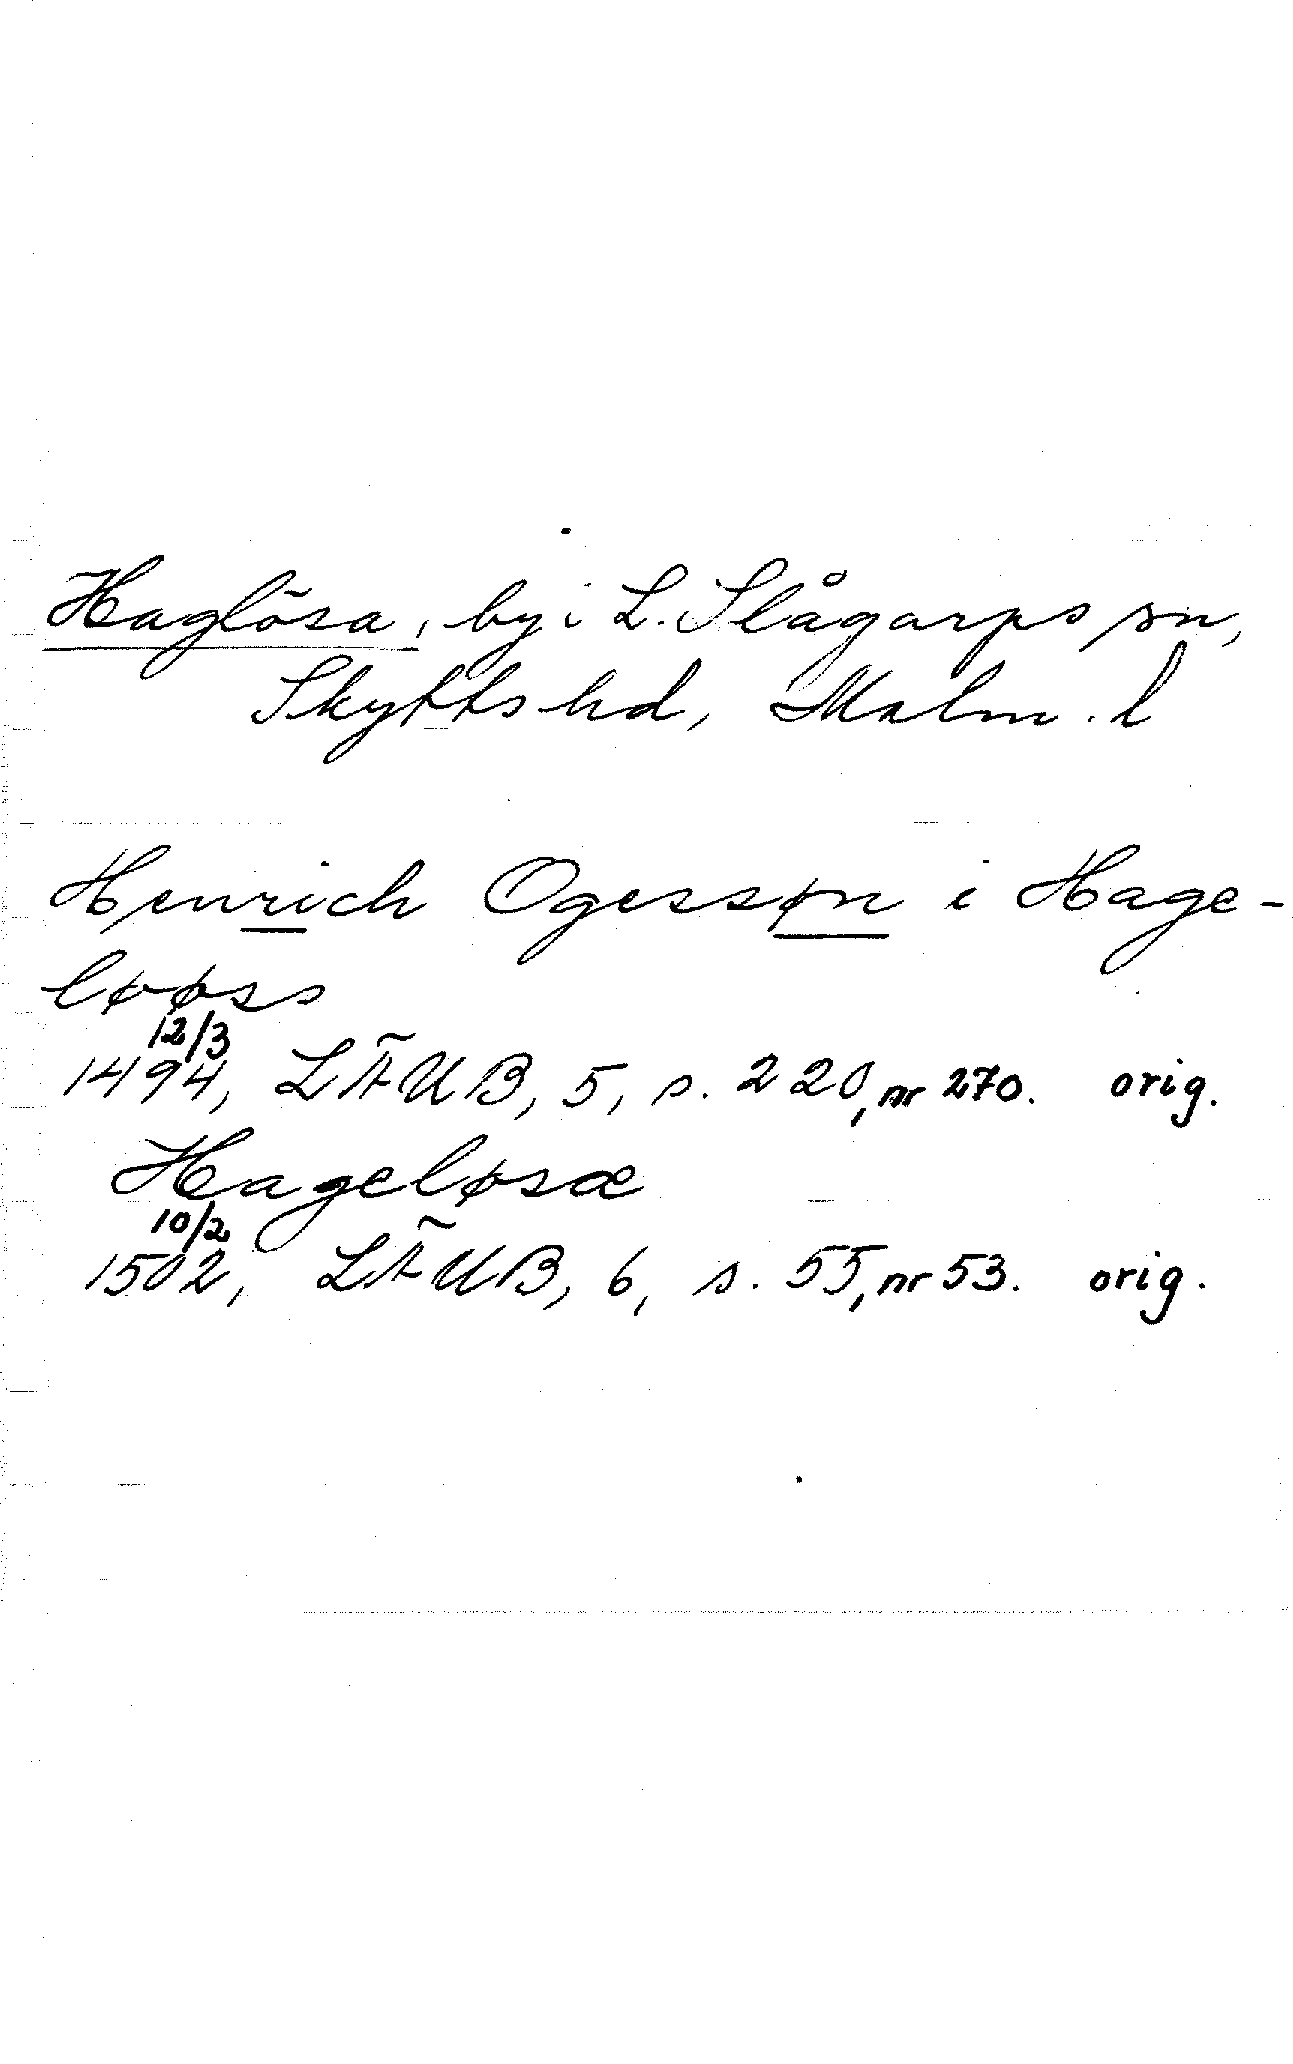 Haglösa, by i L. Slågarps sn,
Skytts hd, Malm. l
Henrich Ogessøn i Hage-
løøss
12/3
1494, LÄUB, 5, s. 220, nr 270. orig.
Hageløsæ
10/2
1502, LÄUB, 6, s. 55, nr 53. orig.